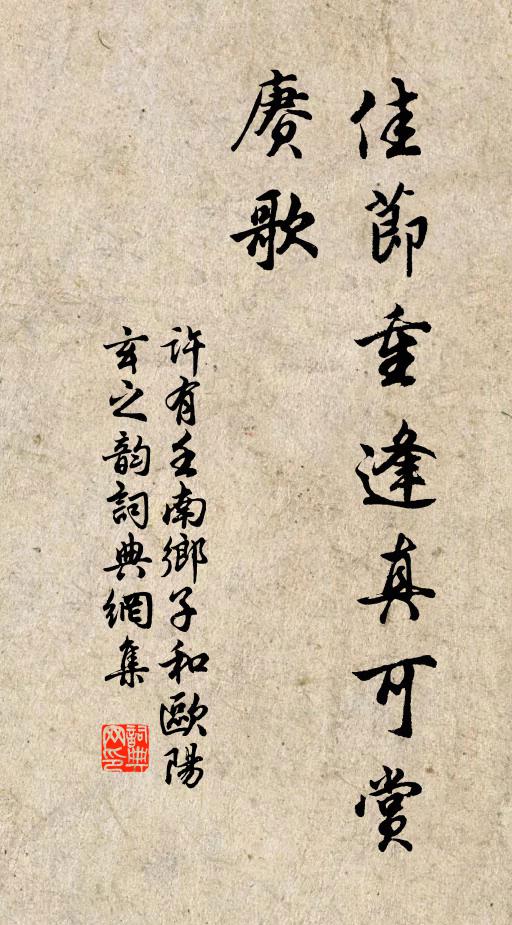 佳節重逢真可賞
賡歌
許有壬南鄉子和歐陽
玄之韵詞典網集
詞典网印